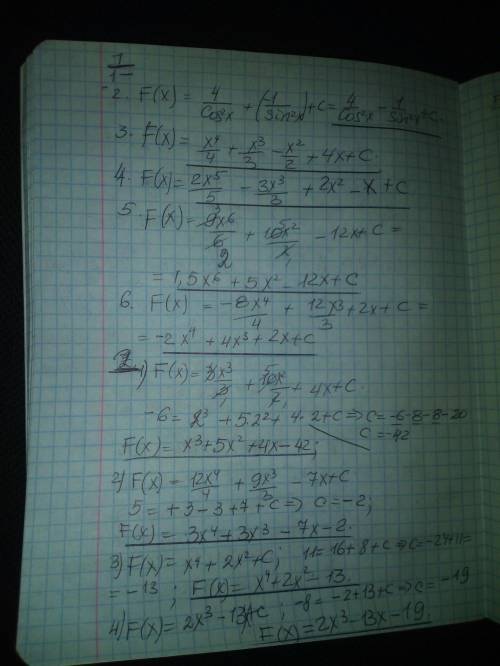 I
1-
2. F(x) = 4/cos²x + (-1/sin²x) + C = 4/cos²x - 1/sin²x + C.
3. F(x) = x⁴/4 + x³/3 - x²/2 + 4x + C.
4. F(x) = 2x⁵/5 - 3x³/3 + 2x² - x + C
5. F(x) = 9x⁶/6 + 10x²/2 - 12x + C =
= 1,5x⁶ + 5x² - 12x + C
6. F(x) = -8x⁴/4 + 12x³/3 + 2x + C =
= -2x⁴ + 4x³ + 2x + C
2. 1) F(x) = 3x³/3 + 10x/2 + 4x + C.
-6 = 2³ + 5·2² + 4·2 + C => C = -6-8-8-20
C = -42
F(x) = x³ + 5x² + 4x - 42;
2) F(x) = 12x⁴/4 + 9x³/3 - 7x + C
5 = + 3 - 3 + 7 + C => C = -2;
F(x) = 3x⁴ + 3x³ - 7x - 2.
3) F(x) = x⁴ + 2x² + C; 11 = 16 + 8 + C => C = -24+11 =
= -13 ; F(x) = x⁴ + 2x² - 13.
4) F(x) = 2x³ - 13x + C ; -8 = -2 + 13 + C => C = -19
F(x) = 2x³ - 13x - 19.